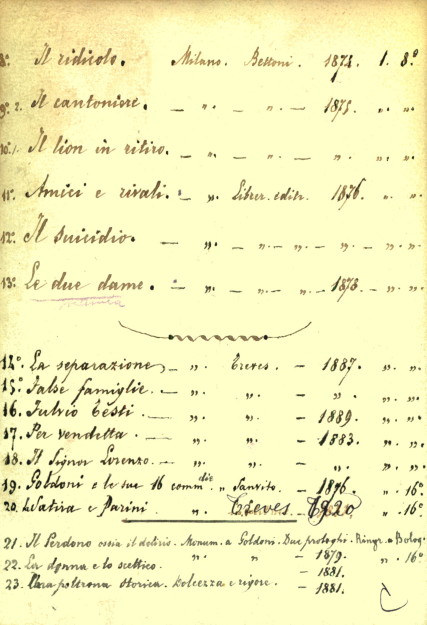 8º Il ridicolo. Milano. Bettoni. 1874. 1. 8º
9º 2. Il cantoniere. — „. — „. — 1875. „. „.
10º/. Il lion in ritiro. — „. — „. — „. „. „.
11º. Amici e rivali. — „. Librer. editr. 1876. „. „.
12º. Il suicidio. — „. — „. — „. — „. — „. „.
13º. Le due dame. — „. — „. — „. — 1878. — „. „.
14º. La separazione, — „. Treves. — 1887. „. „.
15º. False famiglie. — „. „. — „. „. „.
16. Fulvio Testi. — „. „. — 1889. „. „.
17. Per vendetta. — „. „. — 1883. „. „.
18. Il Signor Lorenzo. — „. „. — „. „. „.
19. Goldoni e le sue 16 comm.die „. Sanvito. — 1876. „. 16º
20. La Satira e Parini. „. Treves. 1920 „. 16º.
21. Il Perdono ossia il delirio. Monum. a Goldoni. Due prologhi. Ringr. a Bolog.
22. La donna e lo scettico. „. „. — 1879. „. 16º
— 1881.
23. Una poltrona storica. Dolcezza e rigore. — 1881.